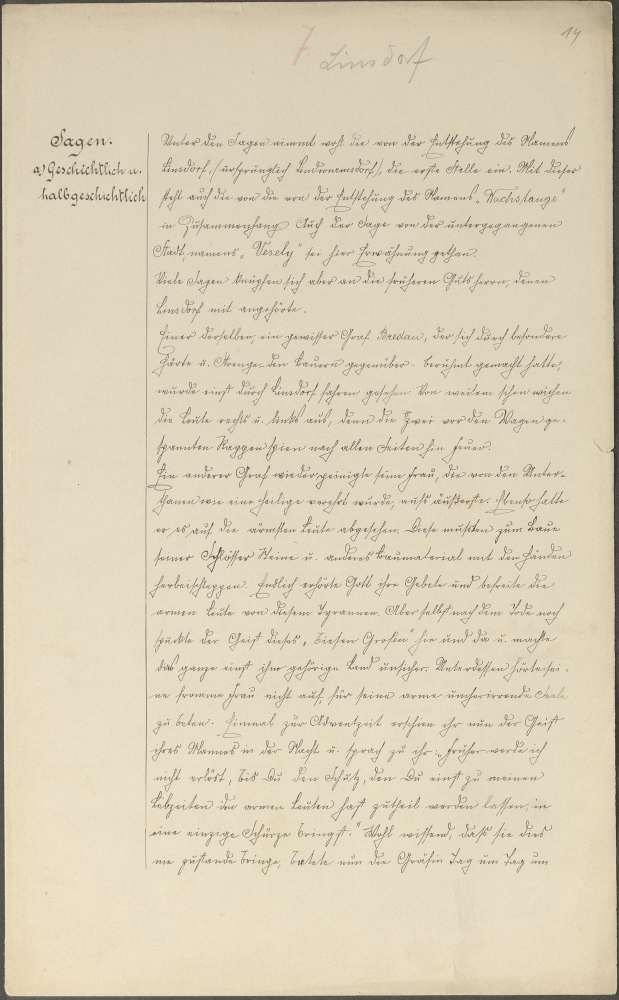 14
7 Linsdorf
Sagen.
a) Geschichtlich u.
halbgeschichtlich
Unter den Sagen nimmt wohl die von der Entstehung des Namens
Linsdorf, (ursprünglich ) die erste Stelle ein. Mit dieser
steht auch die von die von der Entstehung des Namens „Wachstange"
in Zusammenhang. Auch der Sage von der untergegangenen
Stadt, namens „Vesely" sei hier Erwähnung gethan.
Viele Sagen knüpfen sich aber an die früheren Gutsherrn, denen
Linsdorf mit angehörte.
Einer derselben, ein gewisser Graf Bredau, der sich durch besondere
Härte u. Strenge den Bauern gegenüber berühmt gemacht hatte,
wurde einst durch Linsdorf fahren gesehen. Von weitem schon wichen
die Leute rechts u. links aus, denn die zwei vor den Wagen ge-
spannten Rappen spien nach allen Seiten hin Feuer.
Ein anderer Graf wieder peinigte seine Frau, die von den Unter-
thanen wie eine Heilige verehrt wurde, aufs äußerste. Ebenso hatte
er es auf die ärmsten Leute abgesehen. Diese mußten zum Baue
seiner Schlösser Steine u. anderes Baumaterial mit den Händen
herbeischleppen. Endlich erhörte Gott ihre Gebete und befreite die
armen Leute von diesem Tyrannen. Aber selbst nach dem Tode noch
spukte der Geist dieses „Biesen Grofen" hie und da u. machte
das ganze einst ihm gehörige Land unsicher. Unterdessen hörte sei-
ne fromme Frau nicht auf, für seine arme umherirrende Seele
zu beten. Einmal zur Adventzeit erschien ihr nun der Geist
ihres Mannes in der Nacht u. sprach zu ihr: „Früher werde ich
nicht erlöst, bis Du den Schutz, den Du einst zu meinen
Lebzeiten den armen Leuten hast zutheil werden lassen, in
eine einzige Schürze bringst." Wohl wissend, daß sie dies
nie zustande bringe, betete nun die Gräfin Tag um Tag um